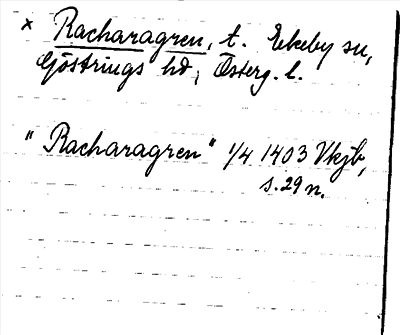 × Racharagren, t. Ekeby sn,
Göstrings hd, Österg. l.
"Racharagren" 1/4 1403 Vkjb,
s. 29 n.